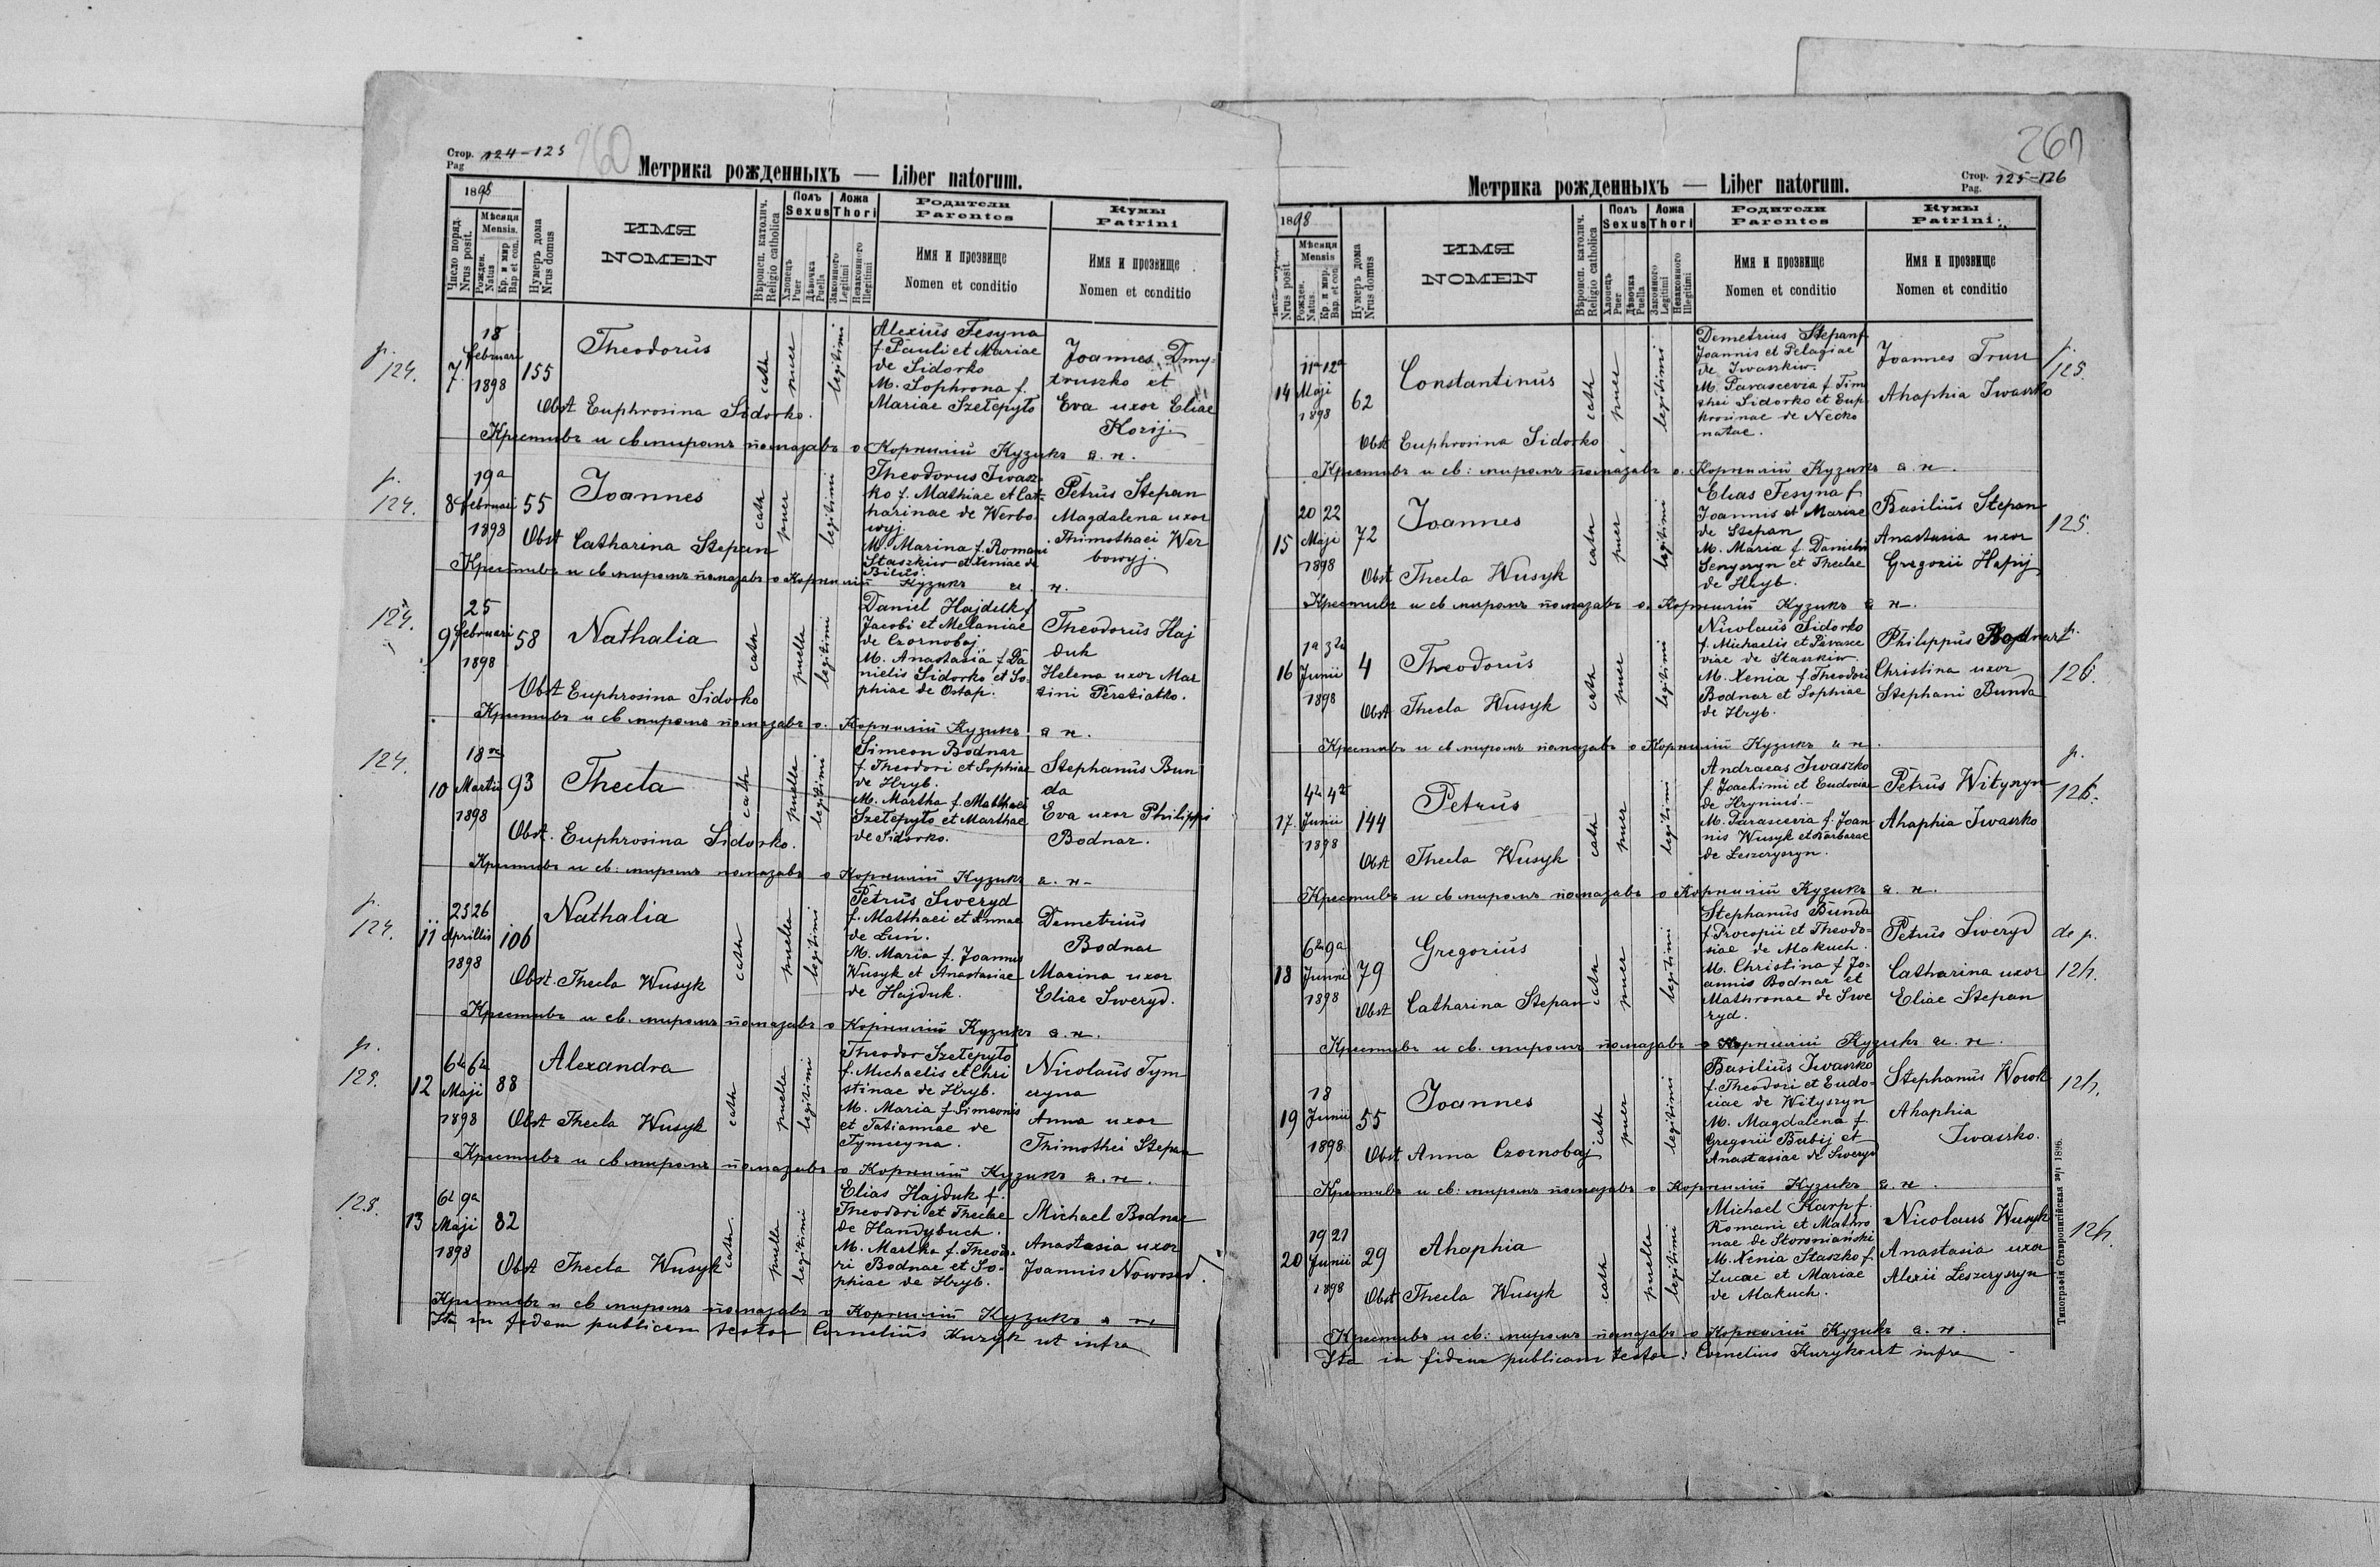 Стор. 124-125
Pag
260
Метрика рожденныхъ — Liber natorum.
1898
Число поряд.
Nrus posit.
Мѣсяця
Mensis.
Рожден.
Natus
Кр. и мир
Bap et con.
Нумеръ дома
Nrus domus
ИМЯ
NOMEN
Вѣроисп. католич.
Religio catholica
Полъ
Sexus
Хлопецъ
Puer
Дѣвочка
Puella
Ложа
Thori
Законного
Legitimi
Незаконного
Illegitimi
Родители
Parentes
Имя и прозвище
Nomen et conditio
Кумы
Patrini
Имя и прозвище
Nomen et conditio
p.
124.
7.
18
februari
1898
155
Theodorus
Obst Euphrosina Sidorko.
cath
puer
legitimi
Alexius Fesyna
f. Pauli et Mariae
de Sidorko
M. Sophrona f.
Mariae Szełepyło
Joannes Dmy-
truszko et
Eva uxor Eliae
Korij.
Крестивъ и св мvромъ помазавъ о Корнилій Кузикъ а. н.
p.
124.
8
19a
februari
1898
55
Joannes
Obst Catharina Stepan
cath
puer
legitimi
Theodorus Iwasz-
ko f. Mathiae et Cat-
harinae de Werbo-
wyj.
M. Marina f. Romani
Staszkiw et Xeniae de
Biłus.
Petrus Stepan
Magdalena uxor
Thimothaei Wer
bowyj.
Крестивъ и св мvромъ помазавъ о Корнилій Кузикъ а. н.
124.
9
25
februari
1898
58
Nathalia
Obst Euphrosina Sidorko
cath
puella
legitimi
Daniel Hajduk f.
Jacobi et Melaniae
de Czornobaj
M. Anastasia f. Da
nielis Sidorko et So-
phiae de Ostap.
Theodorus Haj
duk
Helena uxor Mar
tini Peratiatko.
Крестивъ и св мvромъ помазавъ о. Корнилій Кузикъ а н.
124.
10
18
Martii
1898
93
Thecla
Obst. Euphrosina Sidorko.
cath
puella
legitimi
Simeon Bodnar
f. Theodori et Sophiae
de Hryb.
M. Martha f. Matthaei
Szełepyło et Marthae
de Sidorko.
Stephanus Bun
da
Eva uxor Philippi
Bodnar.
Крестивъ и св: мvромъ помазавъ о Корнилій Кузикъ а. н-
p.
124.
11
25 26
Aprillis
1898
106
Nathalia
Obst. Thecla Wusyk
cath
puella
legitimi
Petrus Sweryd
f. Matthaei et Annae
de Łuń.
M. Maria f. Joannis
Wusyk et Anastasiae
de Hajduk.
Demetrius
Bodnar
Marina uxor
Eliae Sweryd.
Крестивъ и св. мvромъ помазавъ о Корнилій Кузикъ а. н.
p.
125.
12
6a 6a
Maji
1898
88
Alexandra
Obst Thecla Wusyk
cath
puella
legitimi
Theodor Szełepyło
f. Michaelis et Chri
stinae de Hryb.
M. Maria f. Simeonis
et Tatiannae de
Tymczyna.
Nicolaus Tym
czyna
Anna uxor
Thimothei Stepan
Крестивъ и св мvромъ помазавъ о Корнилій Кузикъ а. н.
125.
13
6a 9a
Maji
1898
82
Obst Thecla Wusyk
cath.
puella
legitimi
Elias Hajduk f.
Theodori et Theclae
de Handybuch.
M. Martha f. Theodo-
ri Bodnar et So-
phiae de Hryb.
Michael Bodnar
Anastasia uxor
Joannis Nowosad.
Крестивъ и св мvромъ помазавъ о Корнилій Кузикъ а н
Ita in fidem publicam testor Cornelius Kuzyk ut infra
261
Метрика рожденныхъ — Liber natorum.
Стор.
Pag. 125-126
1898
Nrus posit.
Мѣсяця
Mensis
Рожден.
Natus.
Кр. и мир.
Bap. et con
Нумеръ дома
Nrus domus
ИМЯ
NOMEN
Вѣроисп. католич.
Religio catholica
Полъ
Sexus
Хлопецъ
Puer
Дѣвочка
Puella
Ложа
Thori
Законного
Legitimi
Незаконного
Illegitimi
Родители
Parentes
Имя и прозвище
Nomen et conditio
Кумы
Patrini
Имя и прозвище
Nomen et conditio
14
11a 12a
Maji
1898
62
Constantinus
Obst Euphrosina Sidorko
cath
puer
legitimi
Demetrius Stepan f.
Joannis et Pelagiae
de Iwaszkiw.
M. Parascevia f. Timo
thei Sidorko et Eup-
hrosinae de Necko
natae.
Joannes Trun
Ahaphia Iwaszko
p.
125.
Крестивъ и св: мvромъ помазавъ о. Корнилій Кузикъ а н.
15
20 22
Maji
1898
72
Joannes
Obst Thecla Wusyk
cath
puer
legitimi
Elias Fesyna f.
Joannis et Mariae
de Stepan
M. Maria f. Danielis
Senyszyn et Theclae
de Hryb.
Basilius Stepan
Anastasia uxor
Gregorii Hapij
125.
Крестивъ и св мvромъ помазавъ о. Корнилій Кузикъ а н.
16
1a 3a
Junii
1898
4
Theodorus
Obst Thecla Wusyk
cath
puer
legitimi
Nicolaus Sidorko
f. Michaelis et Parasce
viae de Staszkiw.
M. Xenia f. Theodori
Bodnar et Sophiae
de Hryb.
Philippus Bodnar
Christina uxor
Stephani Bunda
p.
126.
Крестивъ и св мvромъ помазавъ о Корнилій Кузикъ а н.
17.
4a 4a
Junii
1898
144
Petrus
Obst Thecla Wusyk
cath
puer
legitimi
Andraeas Iwaszko
f. Joachimi et Eudociae
de Hryniuś.
M. Parascevia f. Joan
nis Wusyk et Barbarae
de Leszczyszyn.
Petrus Wityszyn
Ahaphia Iwaszko
p.
126.
Крестивъ и св. мvромъ помазавъ о Корнилій Кузикъ а. н.
18
6a 9a
Junii
1898
79
Gregorius
Obst Catharina Stepan
cath
puer
legitimi
Stephanus Bunda
f. Procopii et Theodo-
siae de Makuch.
M. Christina f. Jo-
annis Bodnar et
Mathronae de Swe
ryd.
Petrus Sweryd
Catharina uxor
Eliae Stepan
de p.
Крестивъ и св. мvромъ помазавъ о Корнилій Кузикъ а. н.
19
18
Junii
1898
55
Joannes
Obst Anna Czornobaj
cath
puer
legitimi
Basilius Iwaszko
f. Theodori et Eudo-
ciae de Wityszyn
M. Magdalena f.
Gregorii Bubij et
Anastasiae de Sweryd
Stephanus Wowk
Ahaphia
Iwaszko.
Крестивъ и св: мvромъ помазавъ о Корнилій Кузикъ а. н.
20
19 21
Junii
1898
29
Ahaphia
Obst Thecla Wusyk
cath
puella
legitimi
Michael Karp f.
Romani et Mathro
nae de Storoniański
M. Xenia Staszko f.
Lucae et Mariae
de Makuch.
Nicolaus Wusyk
Anastasia uxor
Alexii Leszczyszyn
Крестивъ и св: мvромъ помазавъ о Корнилій Кузикъ а. н.
Ita in fidem publicam testor: Cornelius Kuzyk ut infra
Типографія Ставропигійская 1896.